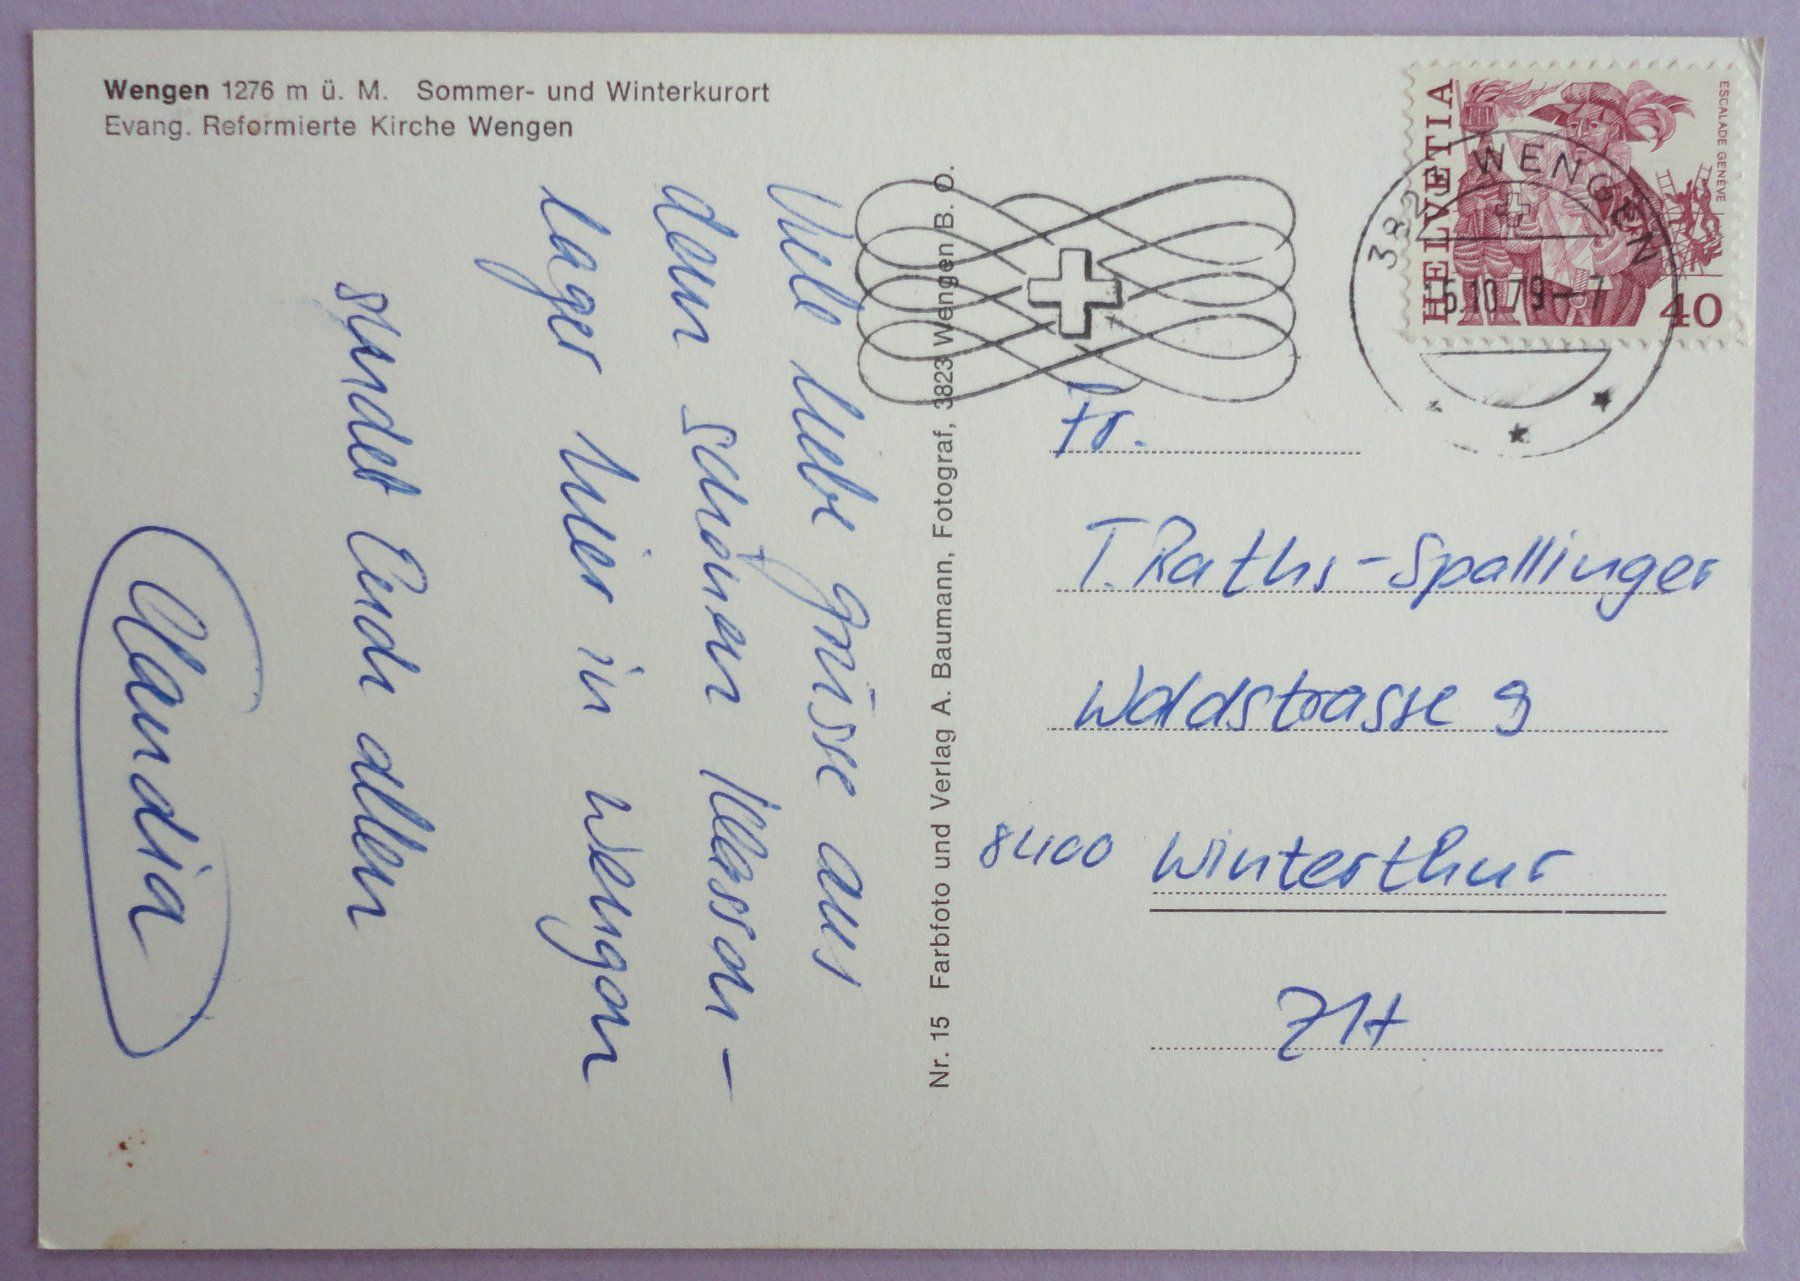 Wengen 1276 m ü. M. Sommer- und Winterkurort
Evang. Reformierte Kirche Wengen
Viele liebe grüsse aus
dem schönen Klassen-
lager hier in wengen
sendet Euch allen
Claudia
Nr. 15 Farbfoto und Verlag A. Baumann, Fotograf, 3823 Wengen B. O.
HELVETIA
ESCALADE GENÈVE
40
3823 WENGEN
15.10.79-7
Fr.
T. Raths-Spallinger
Waldstrasse 9
8400 Winterthur
ZH